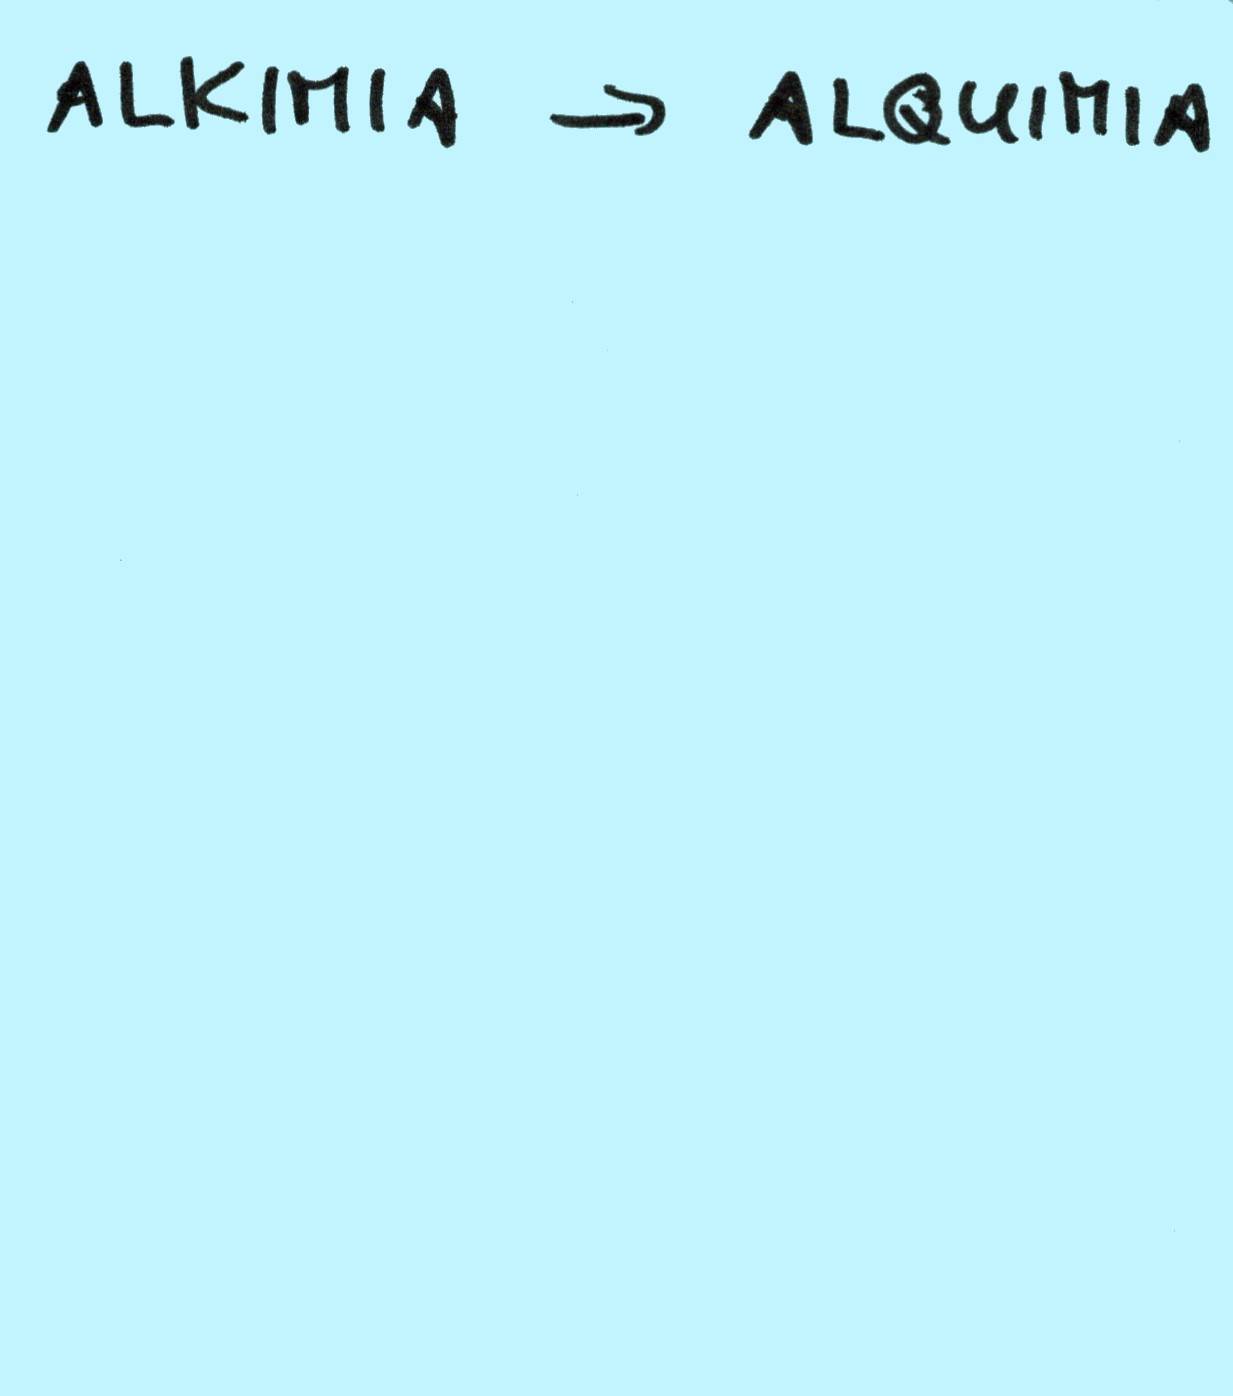 ALKIMIA → ALQUIMIA